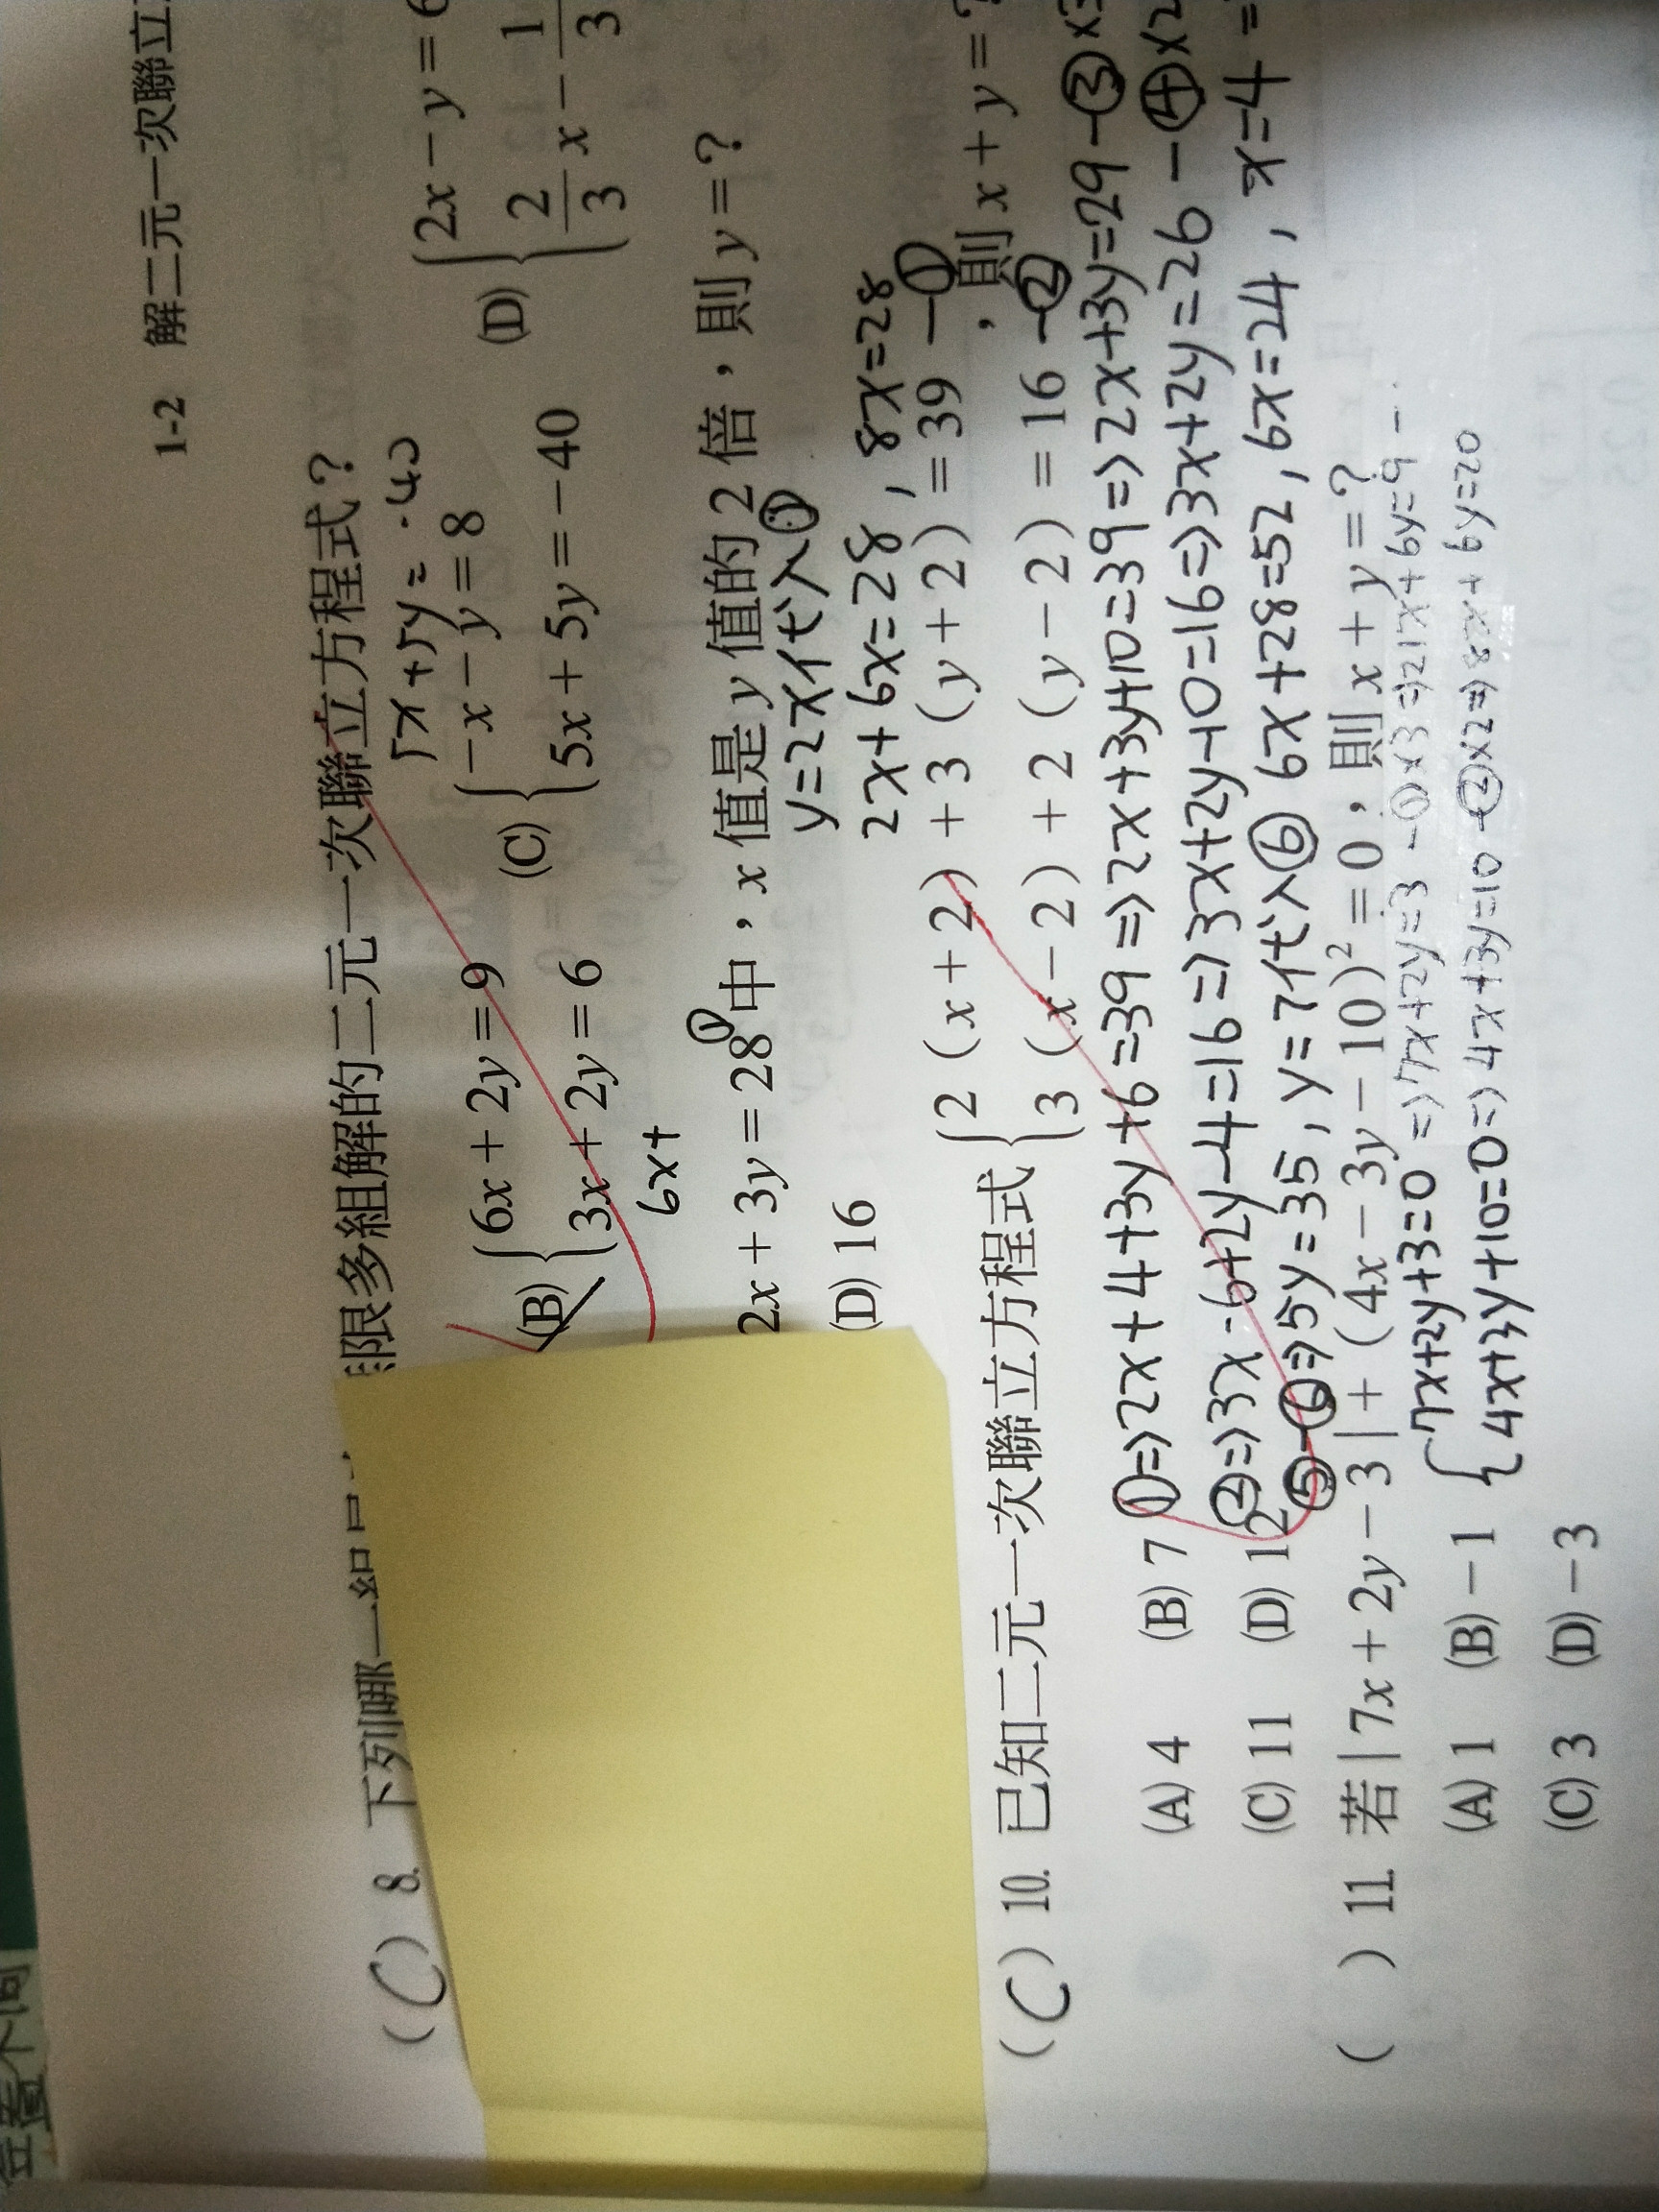 1-2 解二元一次聯立
(C) 8. 下列哪一組
限多組解的二元一次聯立方程式?
5x+5y=-40
(B) {6x+2y=9
3x+2y=6
(C) {-x-y=8
5x+5y=-40
(D) {2x-y=6
2/3 x-1/3
6x+
2x+3y=28①中,x值是y值的2倍,則y=?
y=2x代入①
(D) 16
2x+6x=28, 8x=28
(C) 10. 已知二元一次聯立方程式 {2(x+2)+3(y+2)=39 -①
3(x-2)+2(y-2)=16 -②
,則x+y=?
(A) 4 (B) 7
①=>2x+4+3y+6=39=>2x+3y+10=39=>2x+3y=29-③x3
(C) 11 (D) 12
②=>3x-6+2y-4=16=>3x+2y-10=16=>3x+2y=26-④x2
⑤-⑥=>5y=35, y=7代入⑥ 6x+28=52, 6x=24, x=4
( ) 11. 若|7x+2y-3|+(4x-3y-10)²=0,則x+y=?
(A) 1 (B) -1
{7x+2y+3=0 =>7x+2y=3 -①x3=>21x+6y=9 -
4x+3y+10=0=>4x+3y=10 -②x2=>8x+6y=20
(C) 3 (D) -3